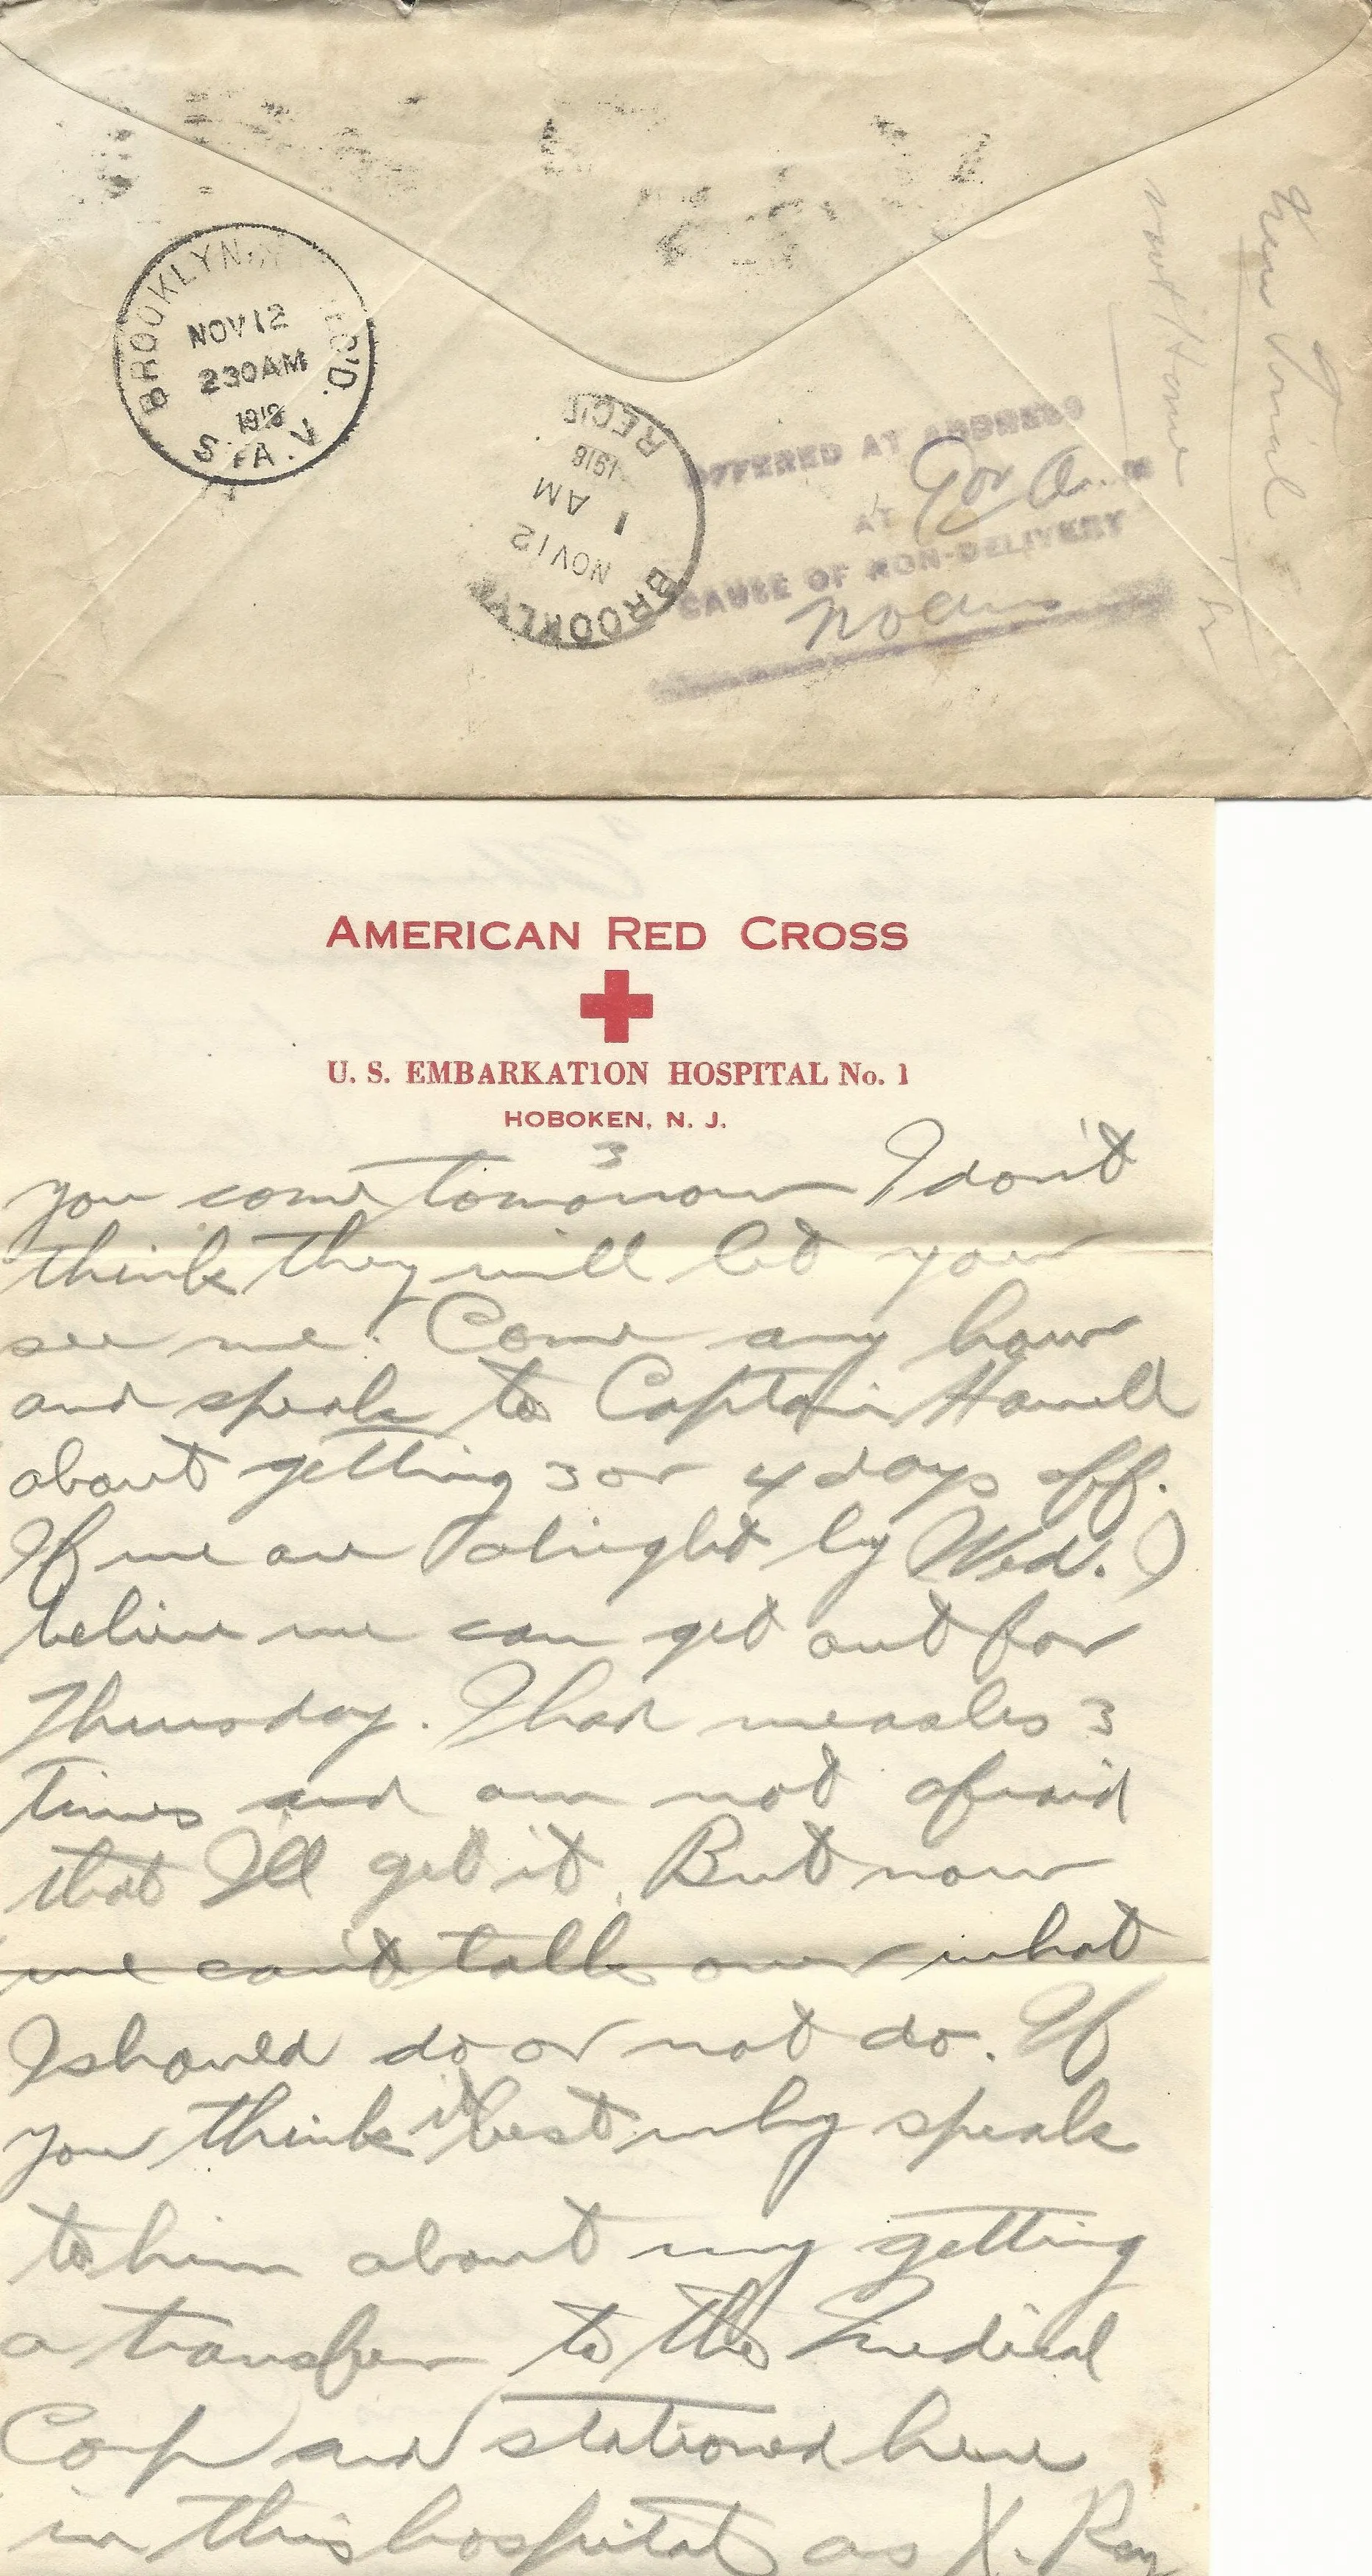 BROOKLYN, N.Y. REC'D.
NOV 12
230AM
1918
STA. V
BROOKLYN
NOV 12
1 AM
1918
REC'D
OFFERED AT ADDRESS
AT
CAUSE OF NON-DELIVERY
not Home
AMERICAN RED CROSS
U. S. EMBARKATION HOSPITAL No. 1
HOBOKEN, N. J.
3
you come tomorrow I don't
think they will let you
see me. Come any how
and speak to Captain
about getting 3 or 4 days off.
If we are alright by Wed. I
believe we can get out for
Thursday. I had measles 3
times and am not afraid
that I'll get it. But now
we can't talk over what
I should do or not do. If
you think it best why speak
to him about my getting
a transfer to the Medical
Corp and stationed here
in this hospital as X. Ray